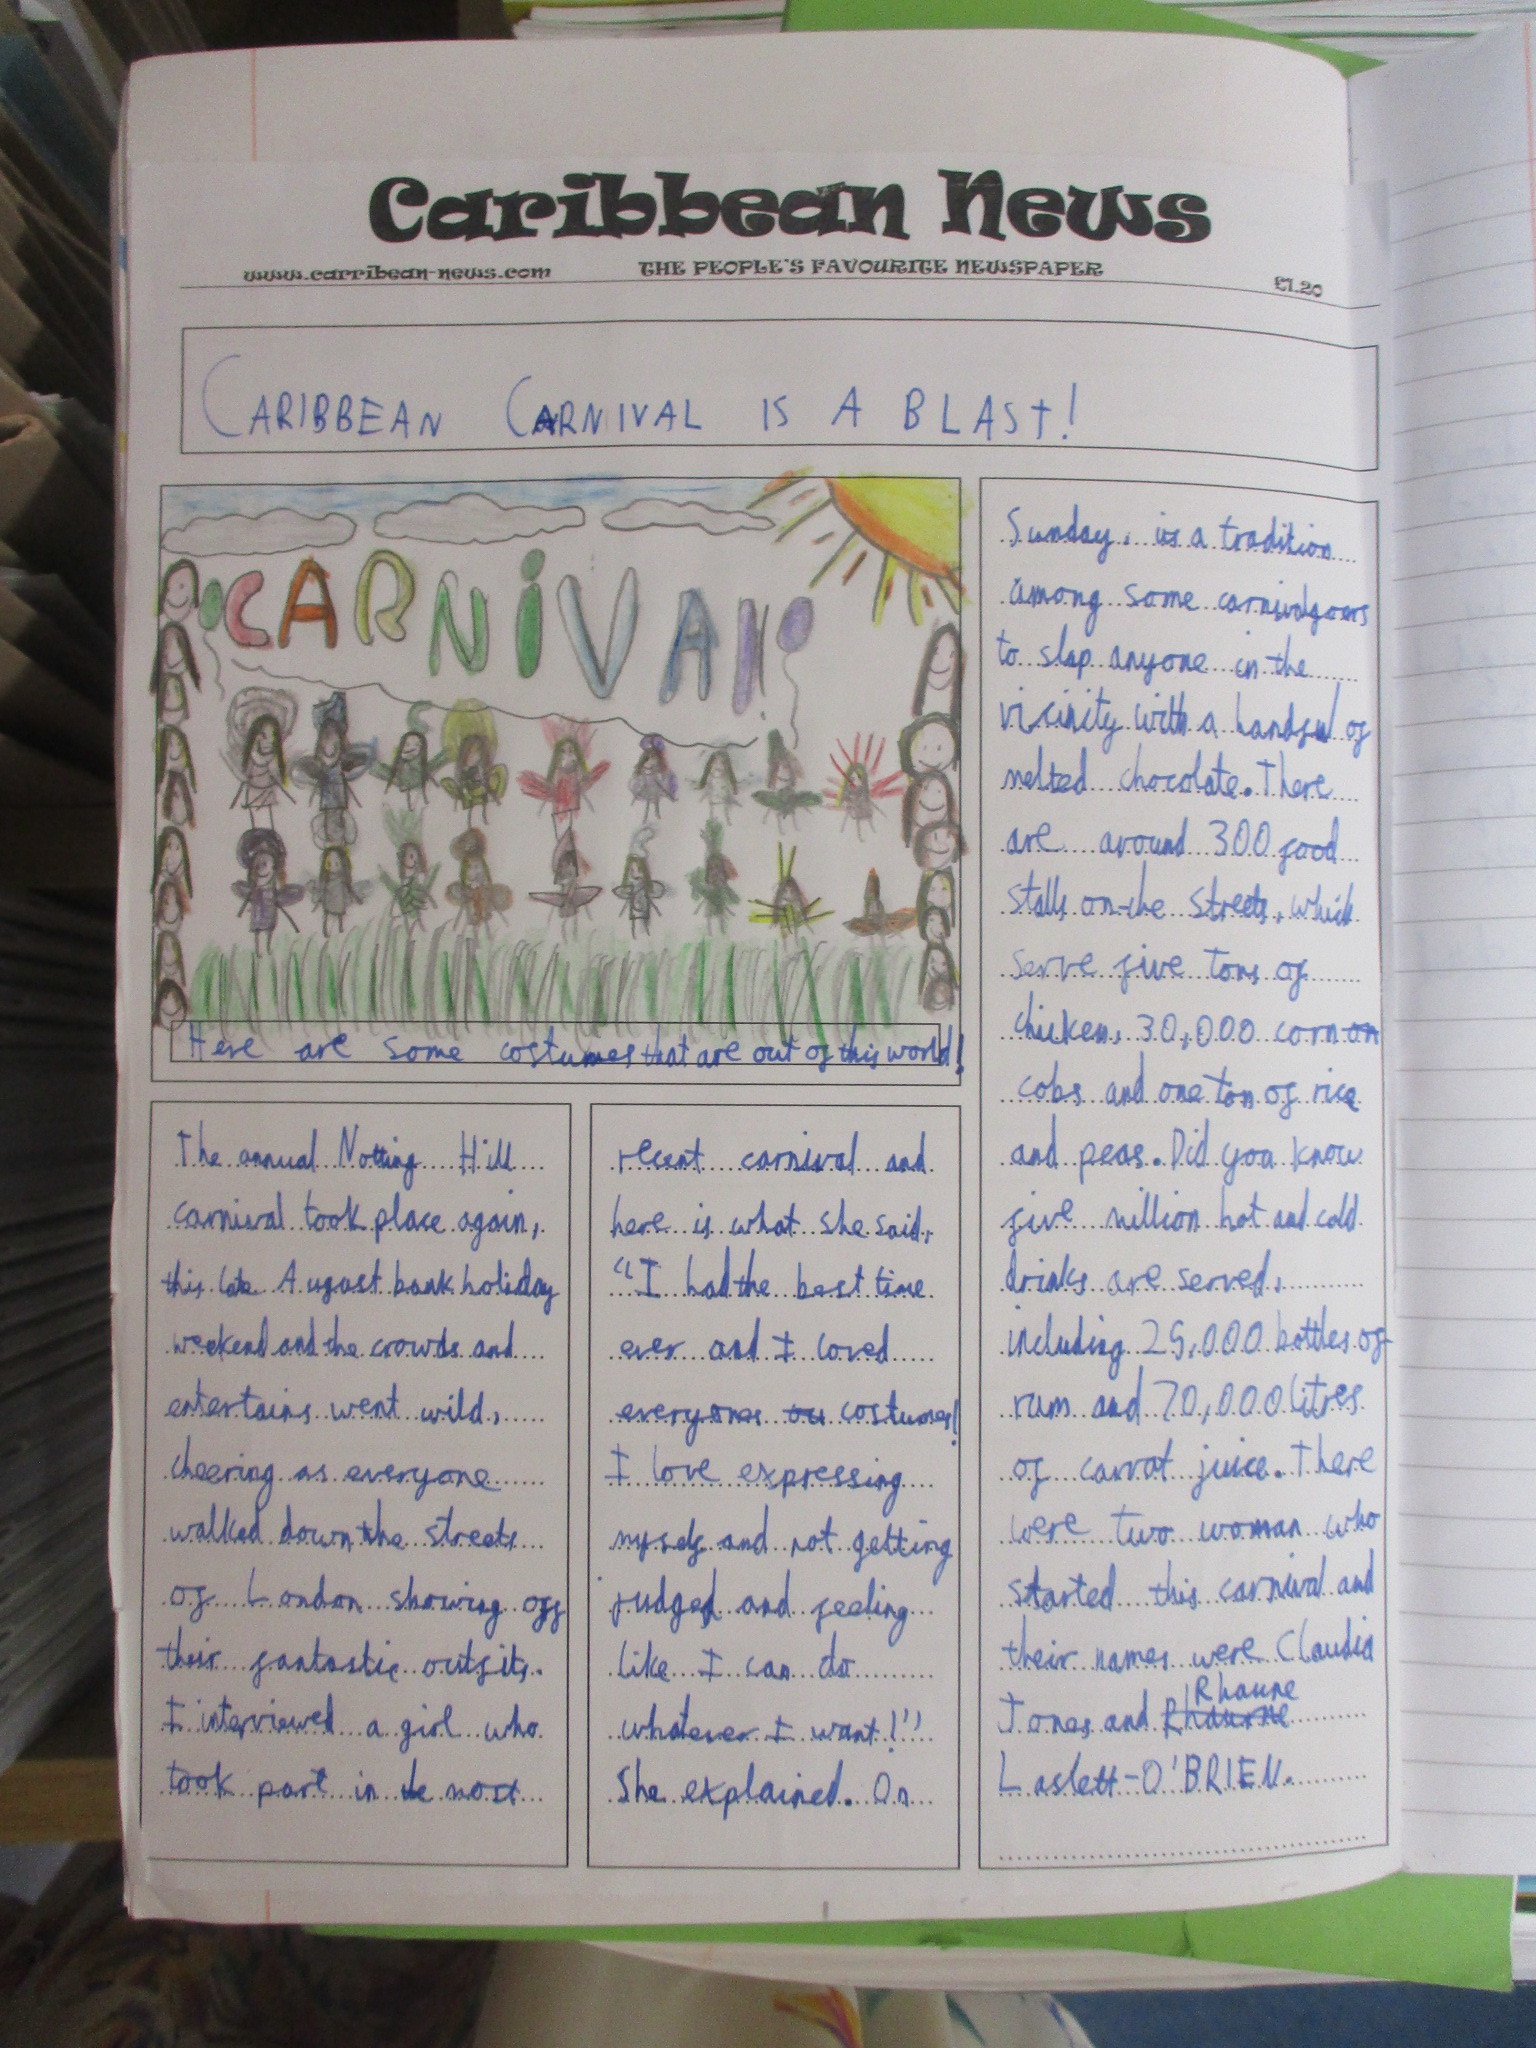 Caribbean News
www.carribean-news.com THE PEOPLE'S FAVOURITE NEWSPAPER £1.20
CARIBBEAN CARNIVAL IS A BLAST!
CARNIVAl
Here are some costumes that are out of this world!
The annual Notting Hill
carnival took place again,
this late August bank holiday
weekend and the crowds and
entertains went wild,
cheering as everyone
walked down the streets
of London showing off
their fantastic outfits.
I interviewed a girl who
took part in the most
recent carnival and
here is what she said,
"I had the best time
ever and I loved
everyones costumes!
I love expressing
myself and not getting
judged and feeling
like I can do
whatever I want!"
She explained. On
Sunday, is a tradition
among some carnivalgoers
to slap anyone in the
vicinity with a handful of
melted chocolate. There
are around 300 food
stalls on the streets, which
serve five tons of
chicken, 30,000 corn on
cobs and one ton of rice
and peas. Did you know
five million hot and cold
drinks are served,
including 25,000 bottles of
rum and 70,000 litres
of carrot juice. There
were two woman who
started this carnival and
their names were Claudia
Jones and Rhaune
Laslett-O'BRIEN.